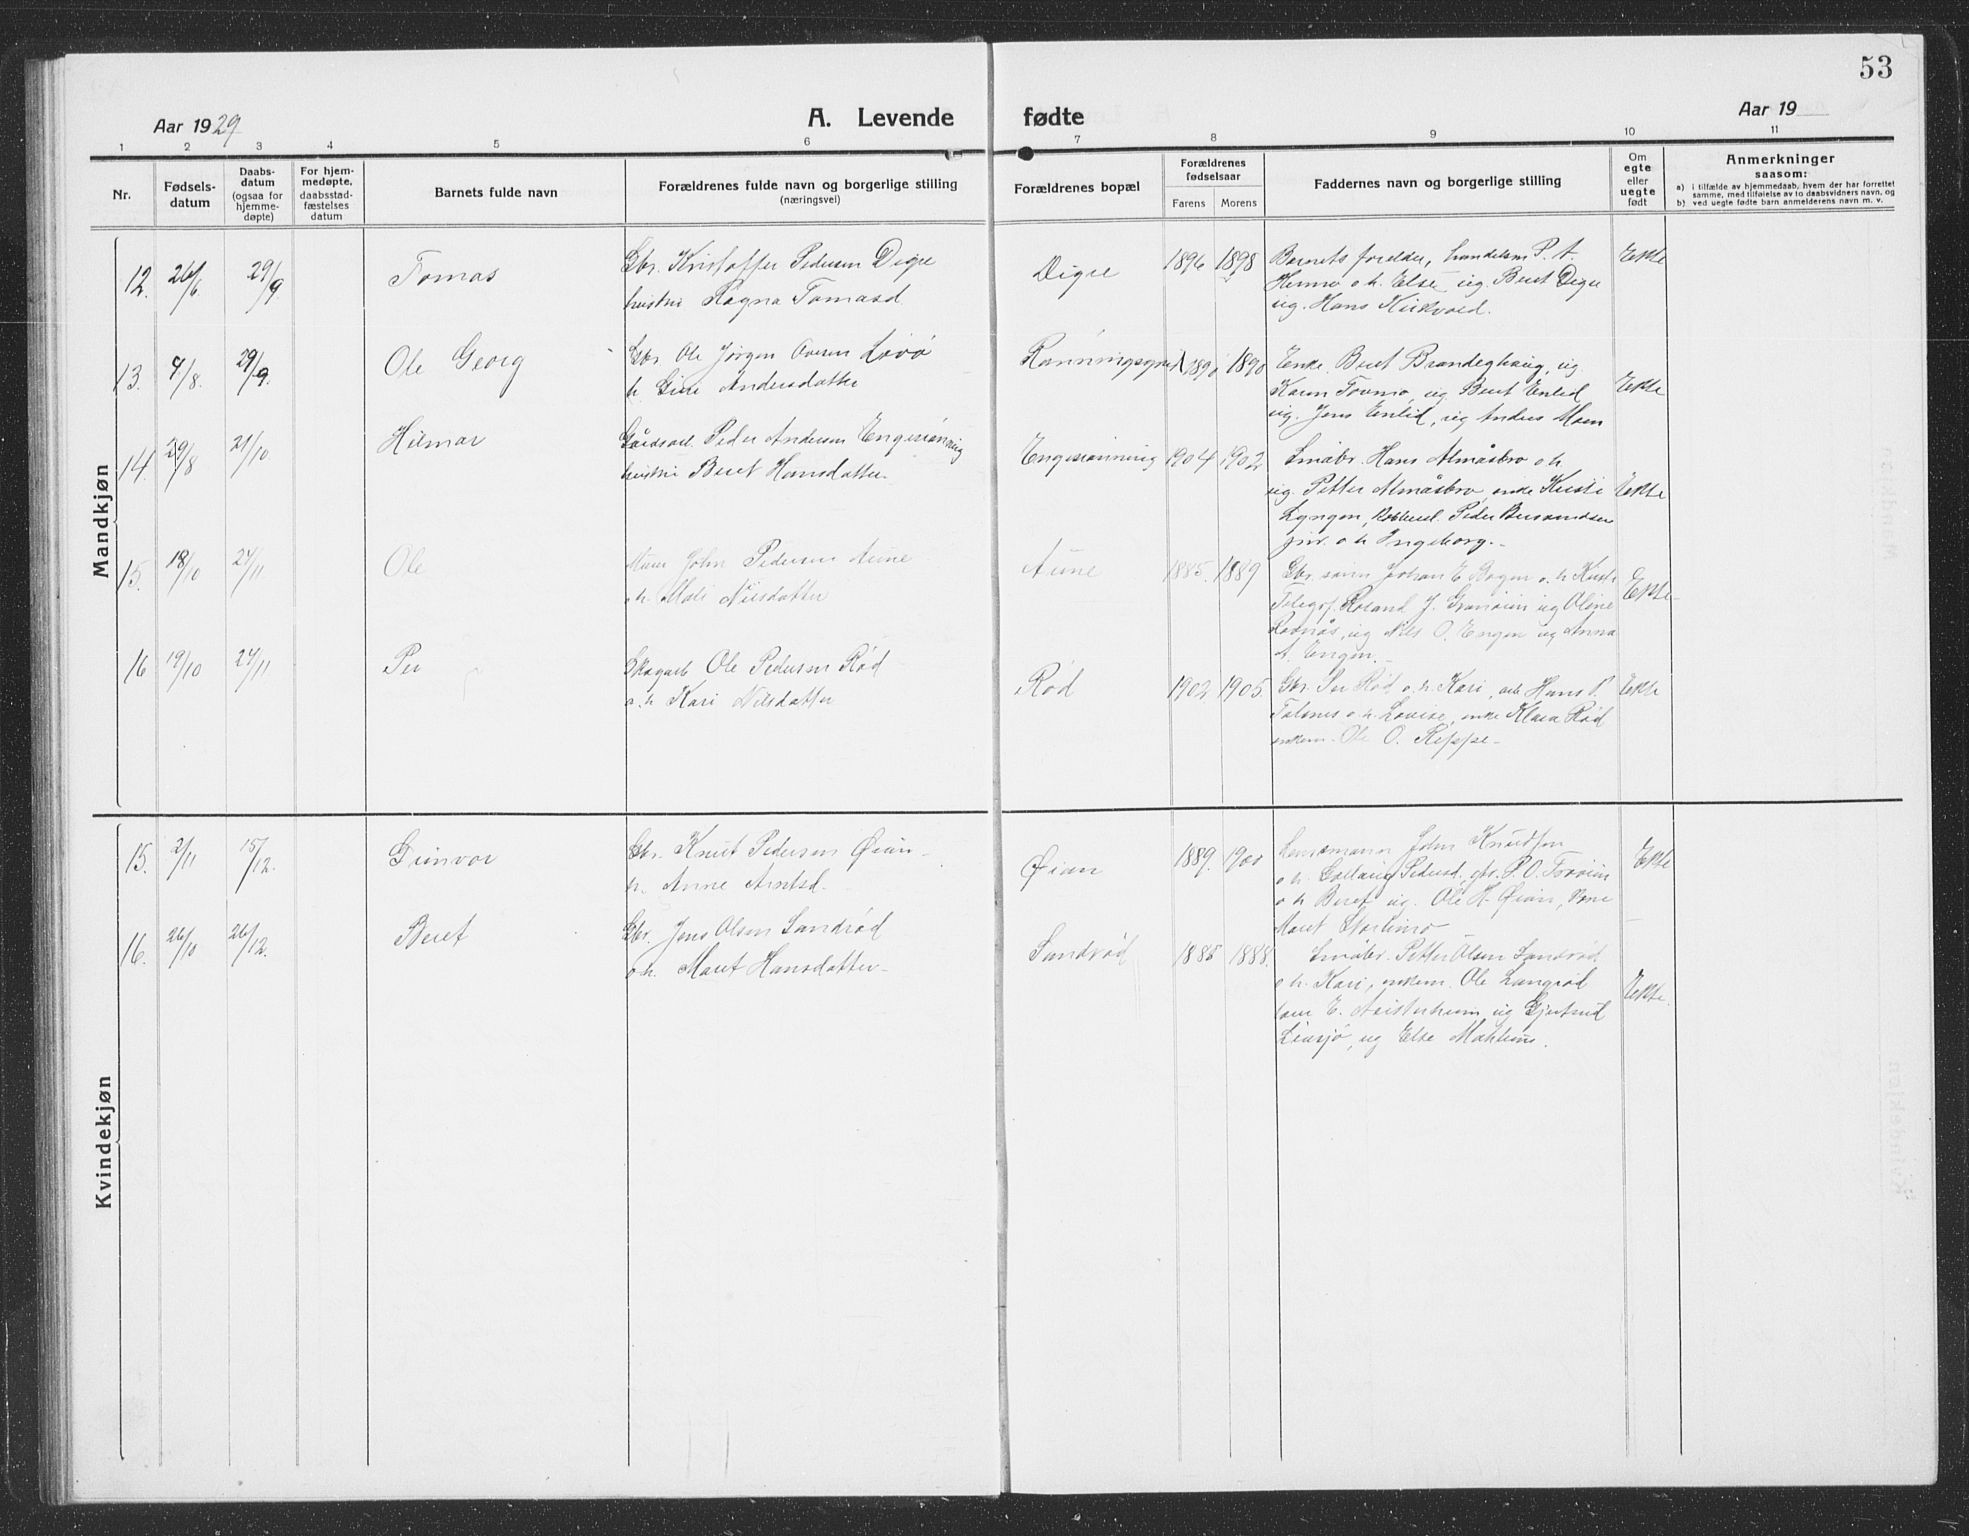 53
Aar 1929
A. Levende fødte
Aar 19
1 2 3 4 5 6 7 8 9 10 11
Nr.
Fødsels-
datum
Daabs-
datum
(ogsaa for
hjemme-
døpte)
For hjem-
medøpte,
daabsstad-
fæstelses
datum
Barnets fulde navn
Forældrenes fulde navn og borgerlige stilling
(næringsvei)
Forældrenes bopæl
Forældrenes
fødselsaar
Farens Morens
Faddernes navn og borgerlige stilling
Om
egte
eller
uegte
født
Anmerkninger
saasom:
a) i tilfælde av hjemmedaab, hvem der har forrettet
samme, med tilføielse av to daabsvidners navn, og
b) ved uegte fødte barn anmelderens navn m. v.
Mandkjøn
12. 26/6 29/9 Tomas
Gbr. Kristoffer Pedersen Digre
hustru Ragna Tomasd
Digre 1896 1898
Barnets forelder, handelsm P. A.
o h. Else, ug. Beret Digre
ug. Hans Kirkvold.
Ekte
13. 4/8 29/9 Ole Georg
Gbr Ole Jørgen
h. Andersdatter
1890 1890
Enke Beret Brandeghaug, ug.
Karen ug Beret Enlid
ug. Jens Enlid, ug Anders Moen
Ekte
14. 29/8 21/10 Hilmar
Gårdsarb. Peder Andersen Engesrønning
hustru Beret Hansdatter
Engesrønning 1904 1902
Småbr. Hans Almåsbro o h.
ug. Petter Almåsbro, enke Kirsti
Lyngen, Peder
jun. o h Ingeborg.
Ekte
15. 18/10 24/11 Ole
Murer John Pedersen Aune
o h. Mali Nilsdatter
Aune 1885. 1889
Gbr. Johan E o. h Kirsti
J. ug Oline
ug Nils O. Engen ug Anna
A. Engen.
Ekte
16 19/10 24/11 Per
Skogarb Ole Pedersen Rød
o. h Kari Nilsdatter
Rød 1902 1905
Gbr. Per Rød o. h. Kari, arb Hans P.
o. h. Lovise, enke Klara Rød
enkem. Ole O. Reppe
Ekte
Kvindekjøn
15. 2/11 15/12. Gunvor
Gbr. Knut Pedersen Øian
h. Anne Arntsd.
Øian 1889. 1900
Lensmann John Knudsen
o h. Gollaug Pedersd, gbr. P. O.
o h Beret ug. Ole H. Øian,
Maret
Ekte
16. 26/10 26/12. Beret
Gbr. Jens Olsen Sandrød
o h. Maret Hansdatter
Sandrød 1885 1888.
Småbr. Petter Olsen Sandrød
o h. Kari, enkem. Ole Langrød
E. ug Gjertrud
ug Else
Ekte.